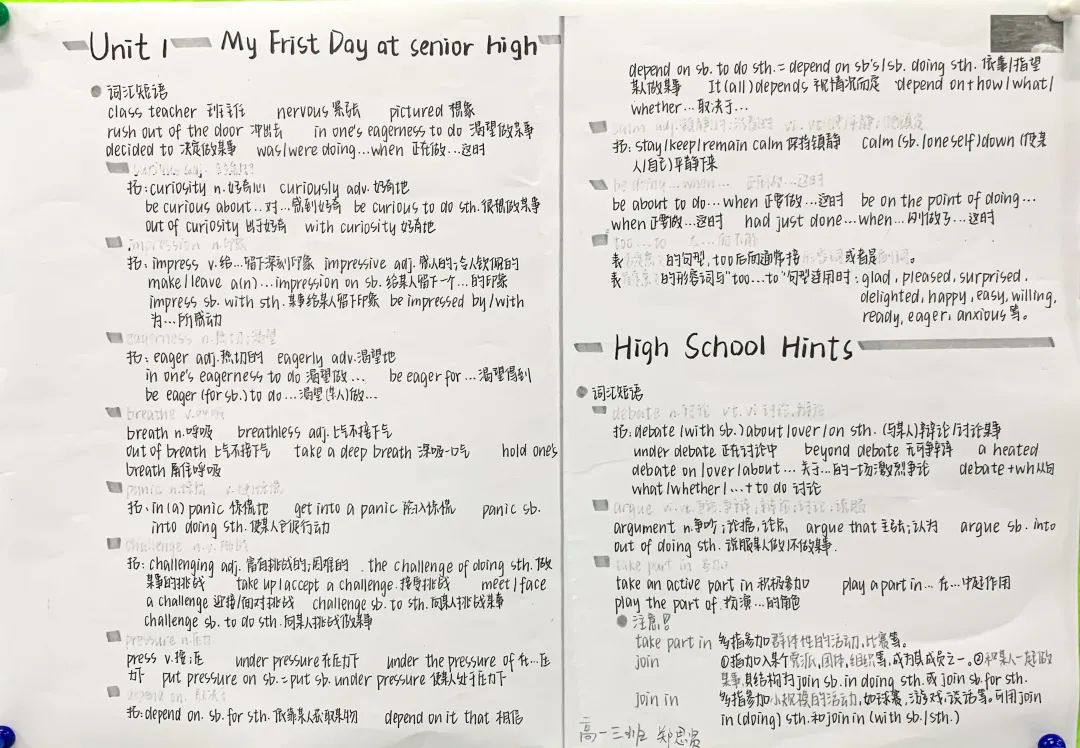 Unit 1 My Frist Day at senior high
词汇短语
class teacher 班主任 nervous 紧张 pictured 想象
rush out of the door 冲出去 in one's eagerness to do 渴望做某事
decided to 决定做某事 was/were doing...when 正在做...这时
curious adj. 好奇的
拓:curiosity n.好奇心 curiously adv.好奇地
be curious about..对...感到好奇 be curious to do sth.很想做某事
out of curiosity 出于好奇 with curiosity 好奇地
impression n.印象
拓:impress v.给...留下深刻印象 impressive adj.感人的;令人钦佩的
make/leave a(n)...impression on sb.给某人留下一个...的印象
impress sb. with sth.某事给某人留下印象 be impressed by/with
为...所感动
eagerness n.热切;渴望
拓:eager adj.热切的 eagerly adv.渴望地
in one's eagerness to do 渴望做... be eager for...渴望得到
be eager (for sb.) to do...渴望(某人)做...
breathe v.呼吸
breath n.呼吸 breathless adj.上气不接下气
out of breath 上气不接下气 take a deep breath 深吸一口气 hold one's
breath 屏住呼吸
panic n.惊慌 v.惊慌
拓:in (a) panic 惊慌地 get into a panic 陷入惊慌 panic sb.
into doing sth.使某人仓促行动
challenge n.v.挑战
拓:challenging adj.富有挑战的;困难的 .the challenge of doing sth.做
某事的挑战 take up/accept a challenge.接受挑战 meet/face
a challenge 迎接/面对挑战 challenge sb. to sth.向某人挑战某事
challenge sb. to do sth.向某人挑战做某事
pressure n.压力
press v.按;压 under pressure 在压力下 under the pressure of 在...压
力下 put pressure on sb.=put sb. under pressure 使某人处于压力下
depend on.
拓:depend on. sb. for sth.依靠某人获取某物 depend on it that 相信
depend on sb. to do sth.=depend on sb's/sb. doing sth.依靠/指望
某人做某事 It(all)depends 视情况而定 depend on+how/what/
whether...取决于...
calm adj.
拓:stay/keep/remain calm 保持镇静 calm (sb./oneself)down (使某
人/自己)平静下来
be doing...when... 正在做...这时
be about to do...when 正要做...这时 be on the point of doing...
when 正要做...这时 had just done...when...刚做了...这时
too...to 太...而不能
表 的句型,too后面通常接形容词或者是副词。
表 的形容词与"too...to"句型连用时:glad,pleased,surprised,
delighted,happy,easy,willing,
ready,eager,anxious等。
High School Hints
词汇短语
debate n.讨论 vt.vi讨论,辩论
拓:debate (with sb.)about/over/on sth.(与某人)辩论/讨论某事
under debate 正在讨论中 beyond debate 无可争辩 a heated
debate on/over/about...关于...的一场激烈争论 debate+wh从句
what/whether/...+to do 讨论
argue
argument n.争吵;论据,论点 argue that 主张;认为 argue sb. into
out of doing sth.说服某人做/不做某事.
take part in 参加
take an active part in 积极参加 play a part in...在...中起作用
play the part of 扮演...的角色
注意!
take part in 多指参加群体性的活动,比赛等。
join ①指加入某个党派,团体,组织等,成为其成员之一。②和某人一起做
某事,其结构为join sb.in doing sth.或join sb.for sth.
join in 多指参加小规模的活动,如球赛,游戏,谈话等。可用join
in (doing) sth.和join in (with sb./sth.)
高一三班 郑思贤